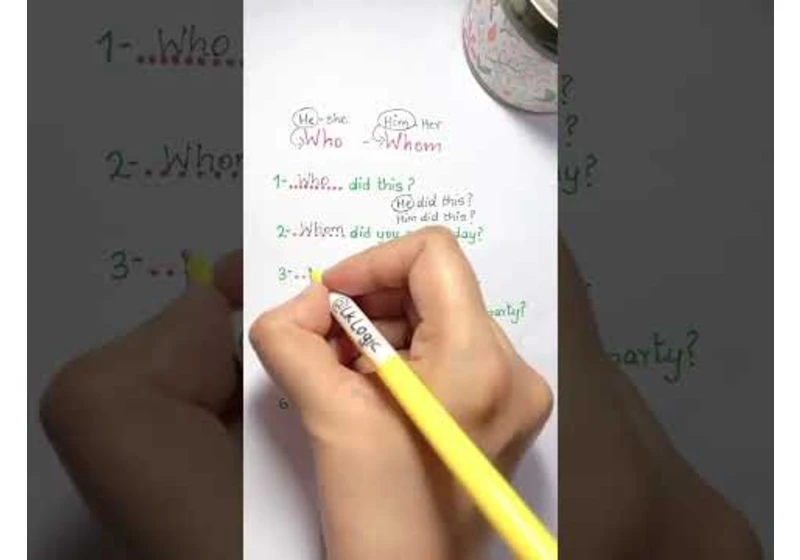 He - she Him - Her
Who - Whom
1- Who did this?
He did this?
Him did this?
2- Whom did you day?
3-
party?
6
@LKLogic
1- Who
2- Whom
3-
?
?
y?
party?